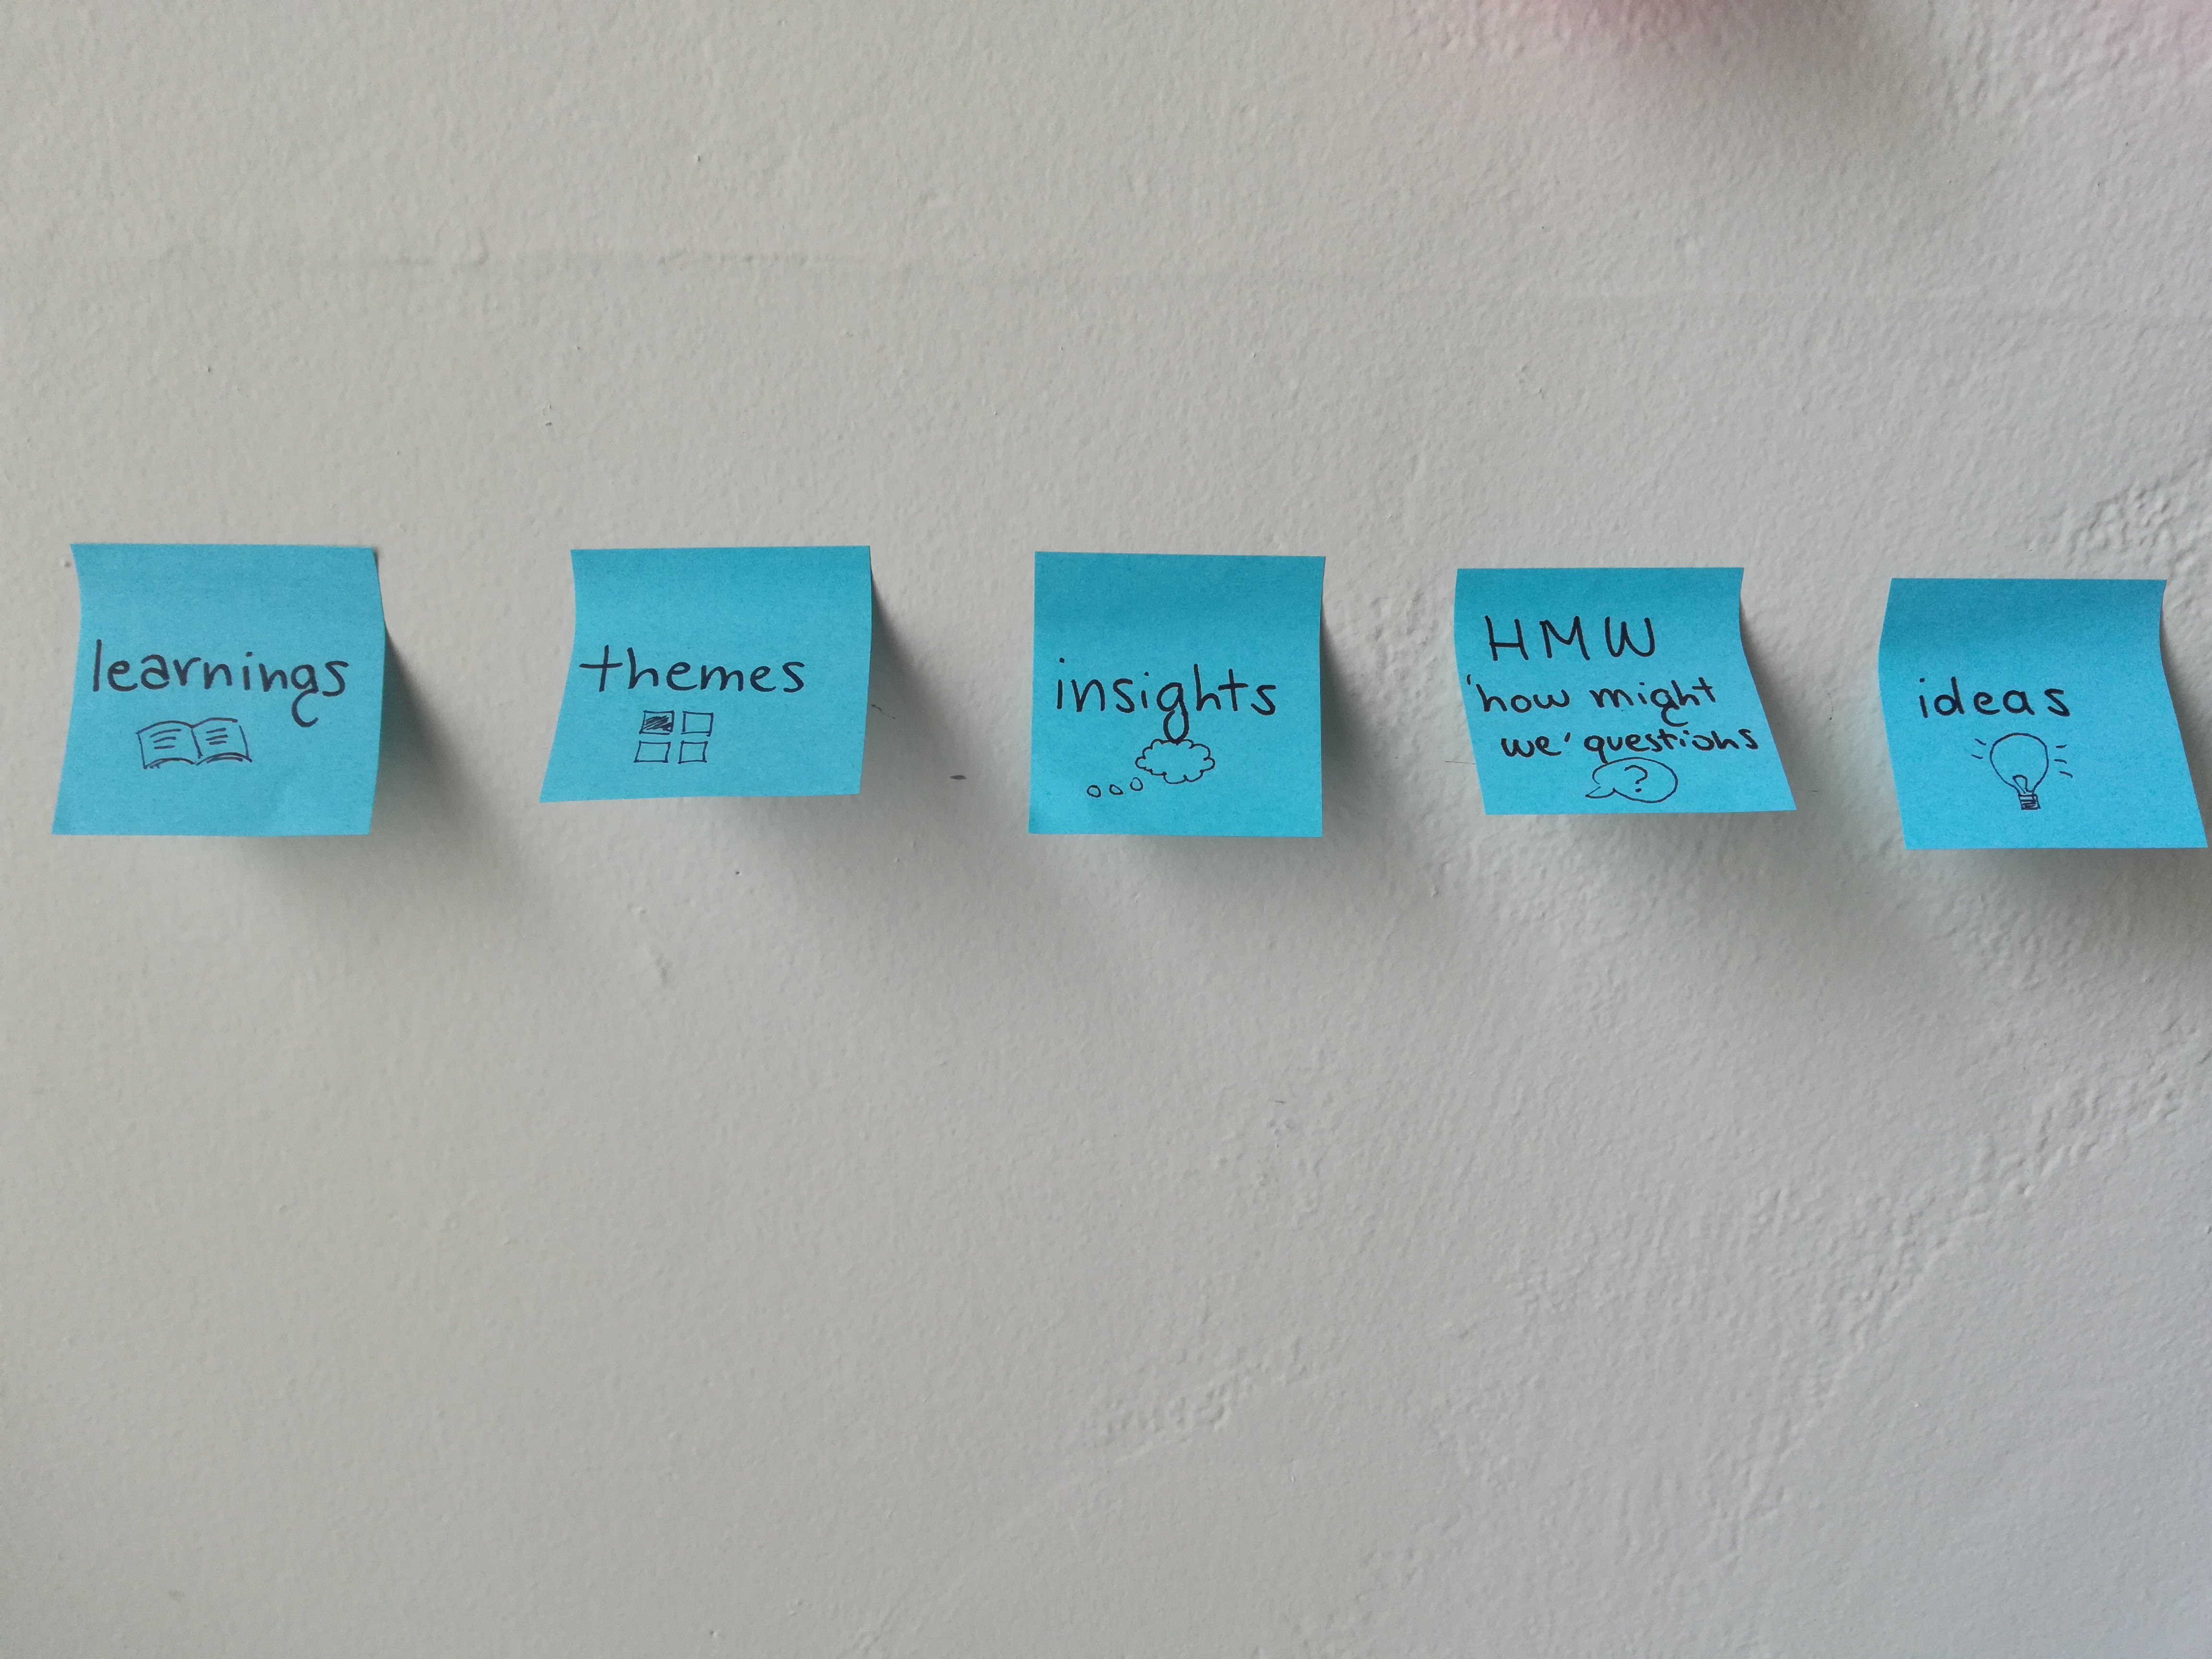 learnings
themes
insights
HMW
'how might
we' questions
?
ideas